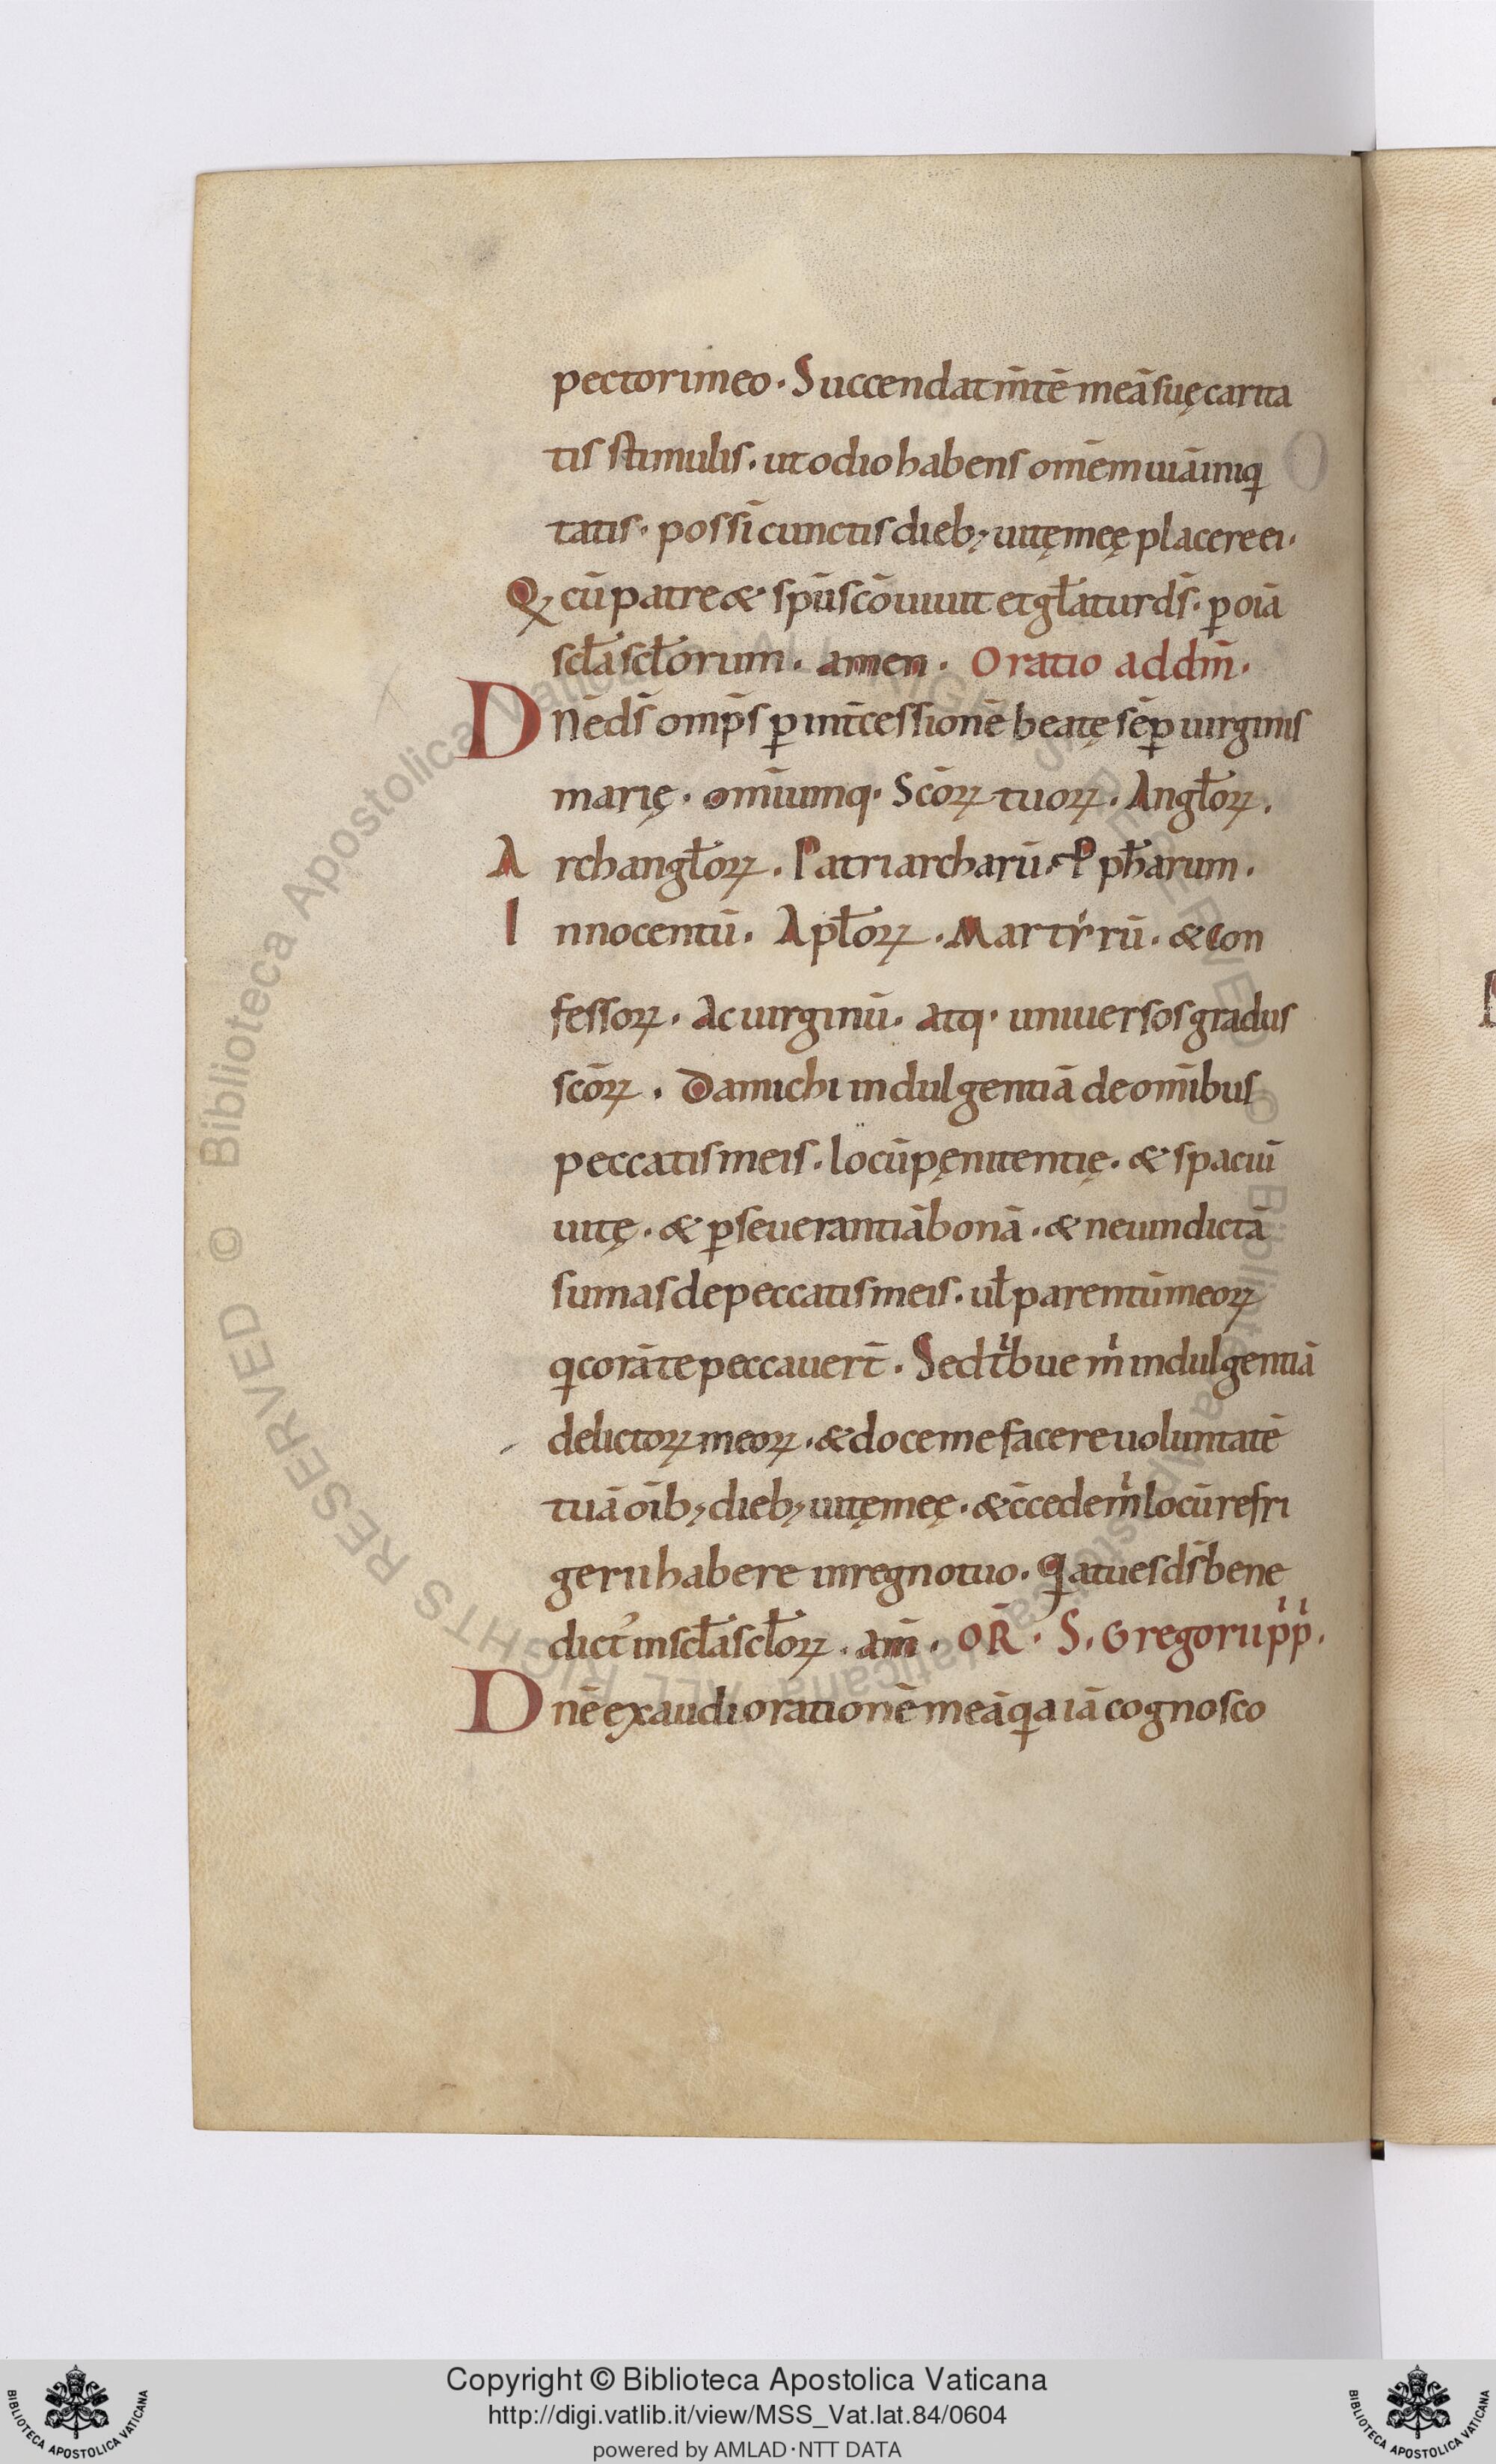 pectori meo. Succendat m̄tē meā suę carita
tis stimulis. ut odio habens omēm uiā iniq
tatis. possī cunctis dieb; uitę meę placere ei.
Q cū patre & sp̄u sc̄o uiuit et gł̄atur ds̄. ꝑ oīa
scł̄a scł̄orum. amen. Oratio ad dm̄.
Dnē ds̄ omp̄s ꝑ int̄cessionē beatę sēꝑ uirginis
marię. omīumq. Sc̄oꝝ tuoꝝ. Angł̄oꝝ.
Archangł̄oꝝ. Patriarcharū. & Pph̄arum.
Innocentū. Apł̄oꝝ. Martyrū. & Con
fessoꝝ. Ac uirginū. atq. uniuersos gradus
sc̄oꝝ. Da michi indulgentiā de omībus
peccatis meis. locū pęnitentię. & spaciū
uitę. & ꝑseuerantiā bonā. & ne uindictā
sumas de peccatis meis. ul̄ parentū meoꝝ
q corā te peccauer̄t. Sed tⁱbue mⁱ indulgentiā
delictoꝝ meoꝝ. & doce me facere uoluntatē
tuā oīb; dieb; uitę meę. & c̄cede mⁱ locū refri
gerii habere in regno tuo. Qa tu es ds̄ bene
dict' in scł̄a scł̄oꝝ. am̄. OR̄. S. Gregorii pⁱpⁱ.
Dnē exaudi orationē meā qa iā cognosco
Copyright © Biblioteca Apostolica Vaticana
http://digi.vatlib.it/view/MSS_Vat.lat.84/0604
powered by AMLAD·NTT DATA
BIBLIOTECA APOSTOLICA VATICANA
BIBLIOTECA APOSTOLICA VATICANA